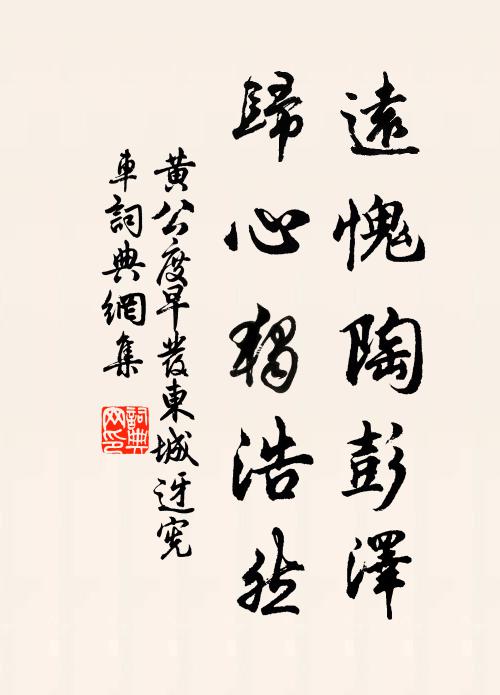 遠愧陶彭澤
歸心獨浩然
黃公度早發東城迓憲
車詞典網集
詞典網印